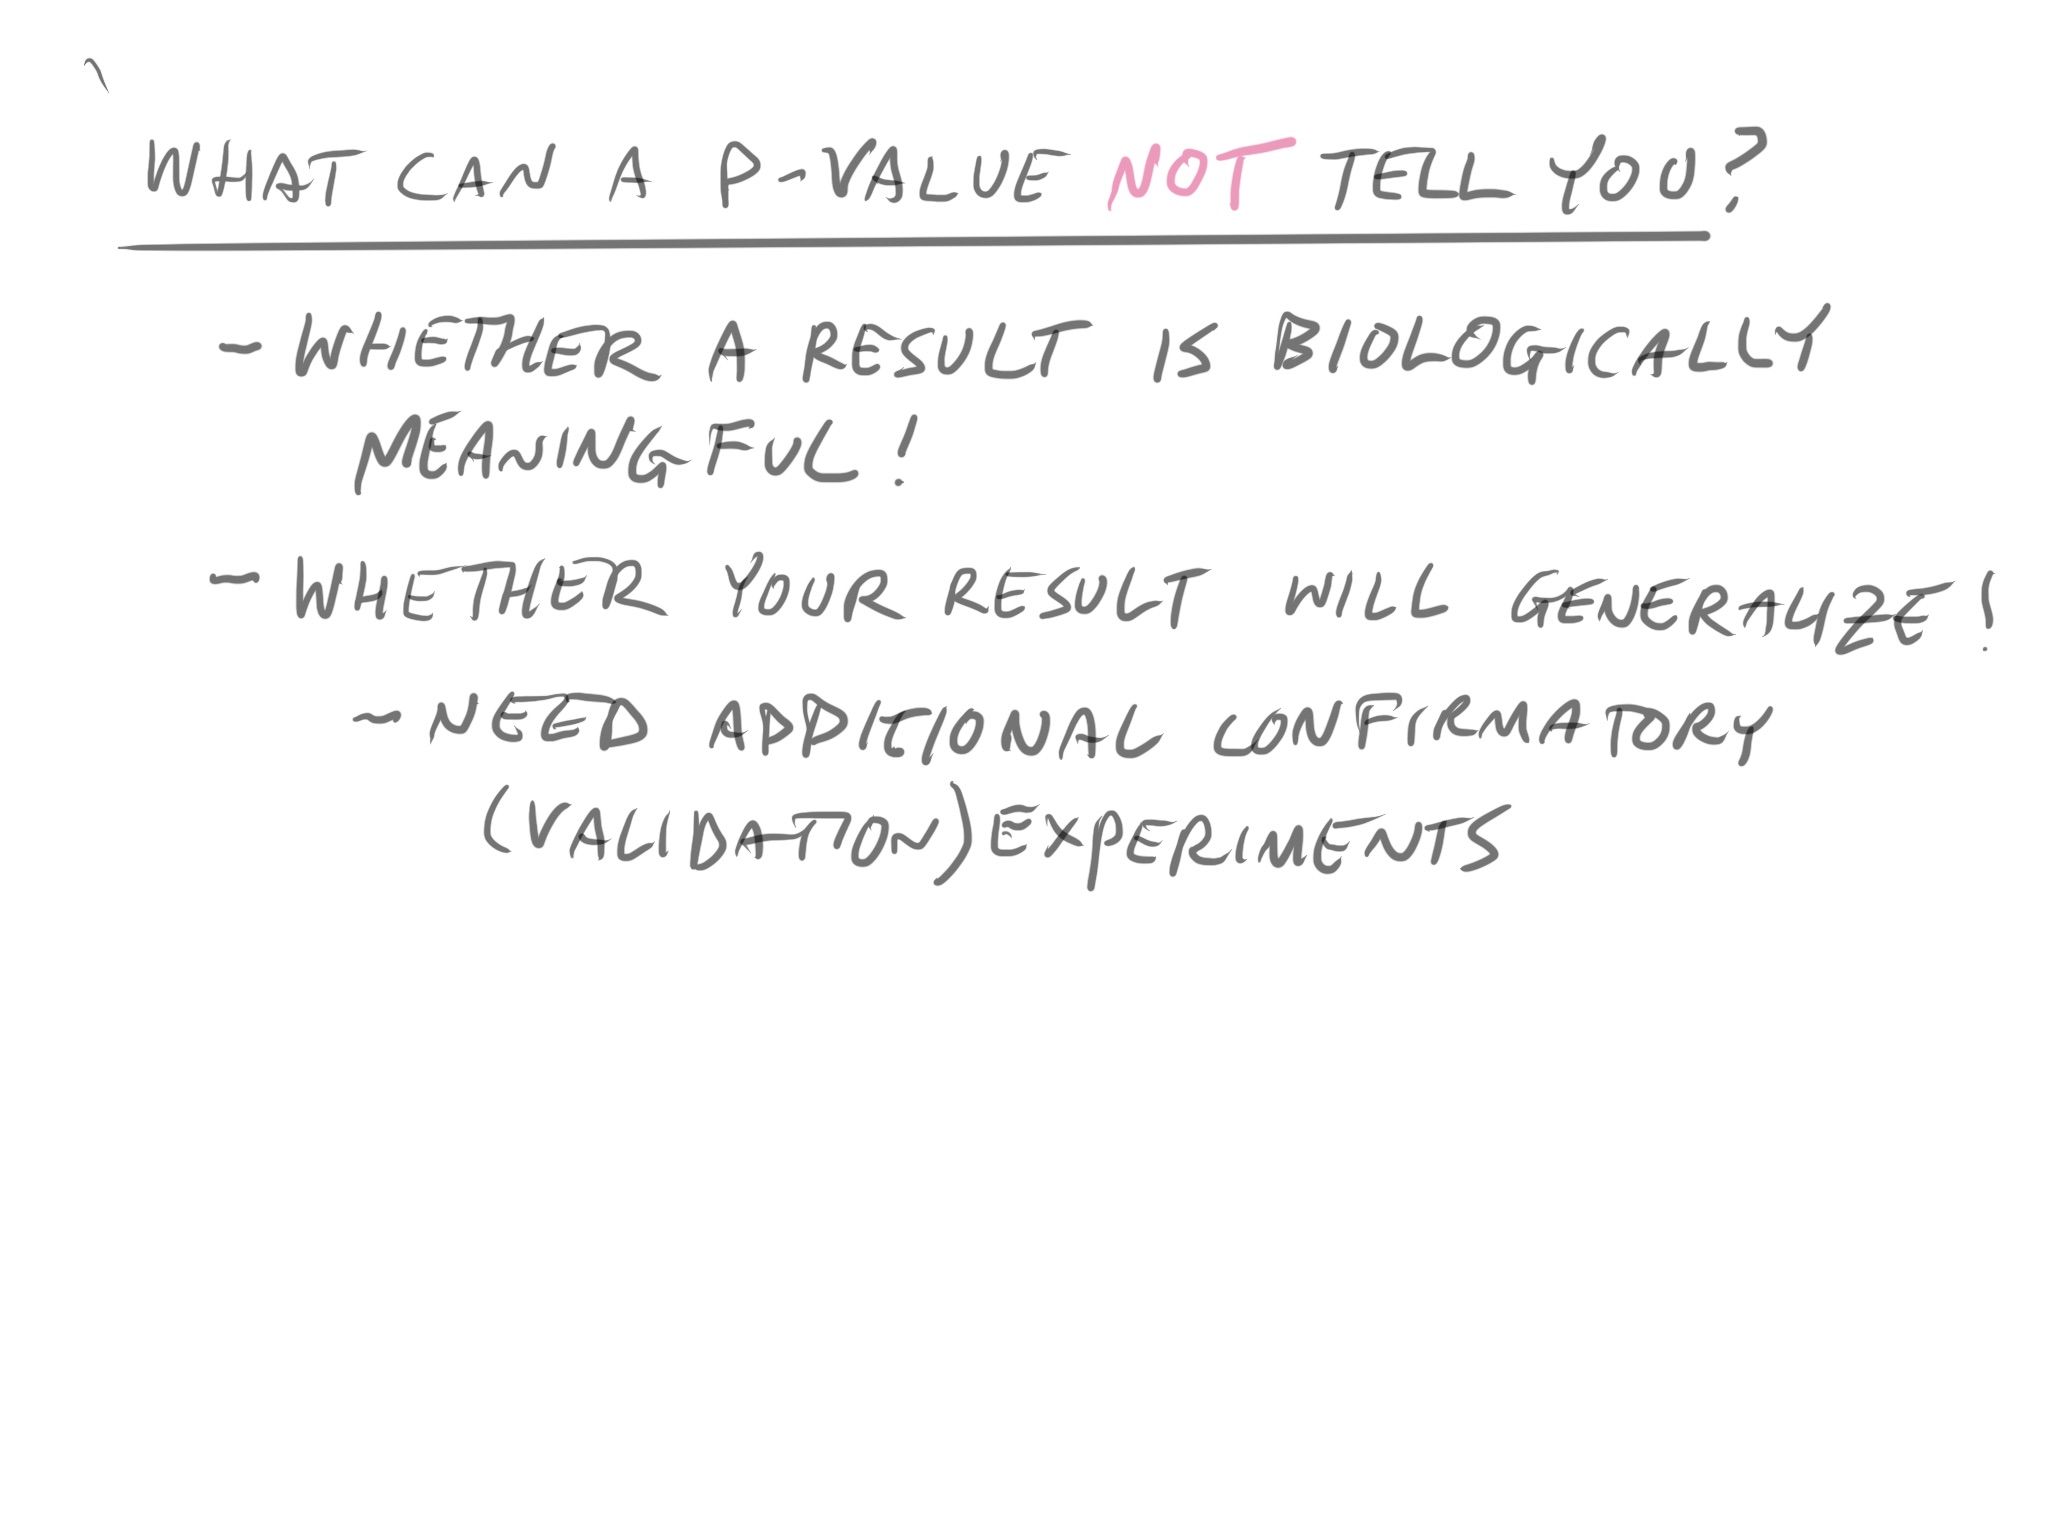 WHAT CAN A P-VALUE NOT TELL YOU?
- WHETHER A RESULT IS BIOLOGICALLY
MEANINGFUL!
- WHETHER YOUR RESULT WILL GENERALIZE!
- NEED ADDITIONAL CONFIRMATORY
(VALIDATION) EXPERIMENTS